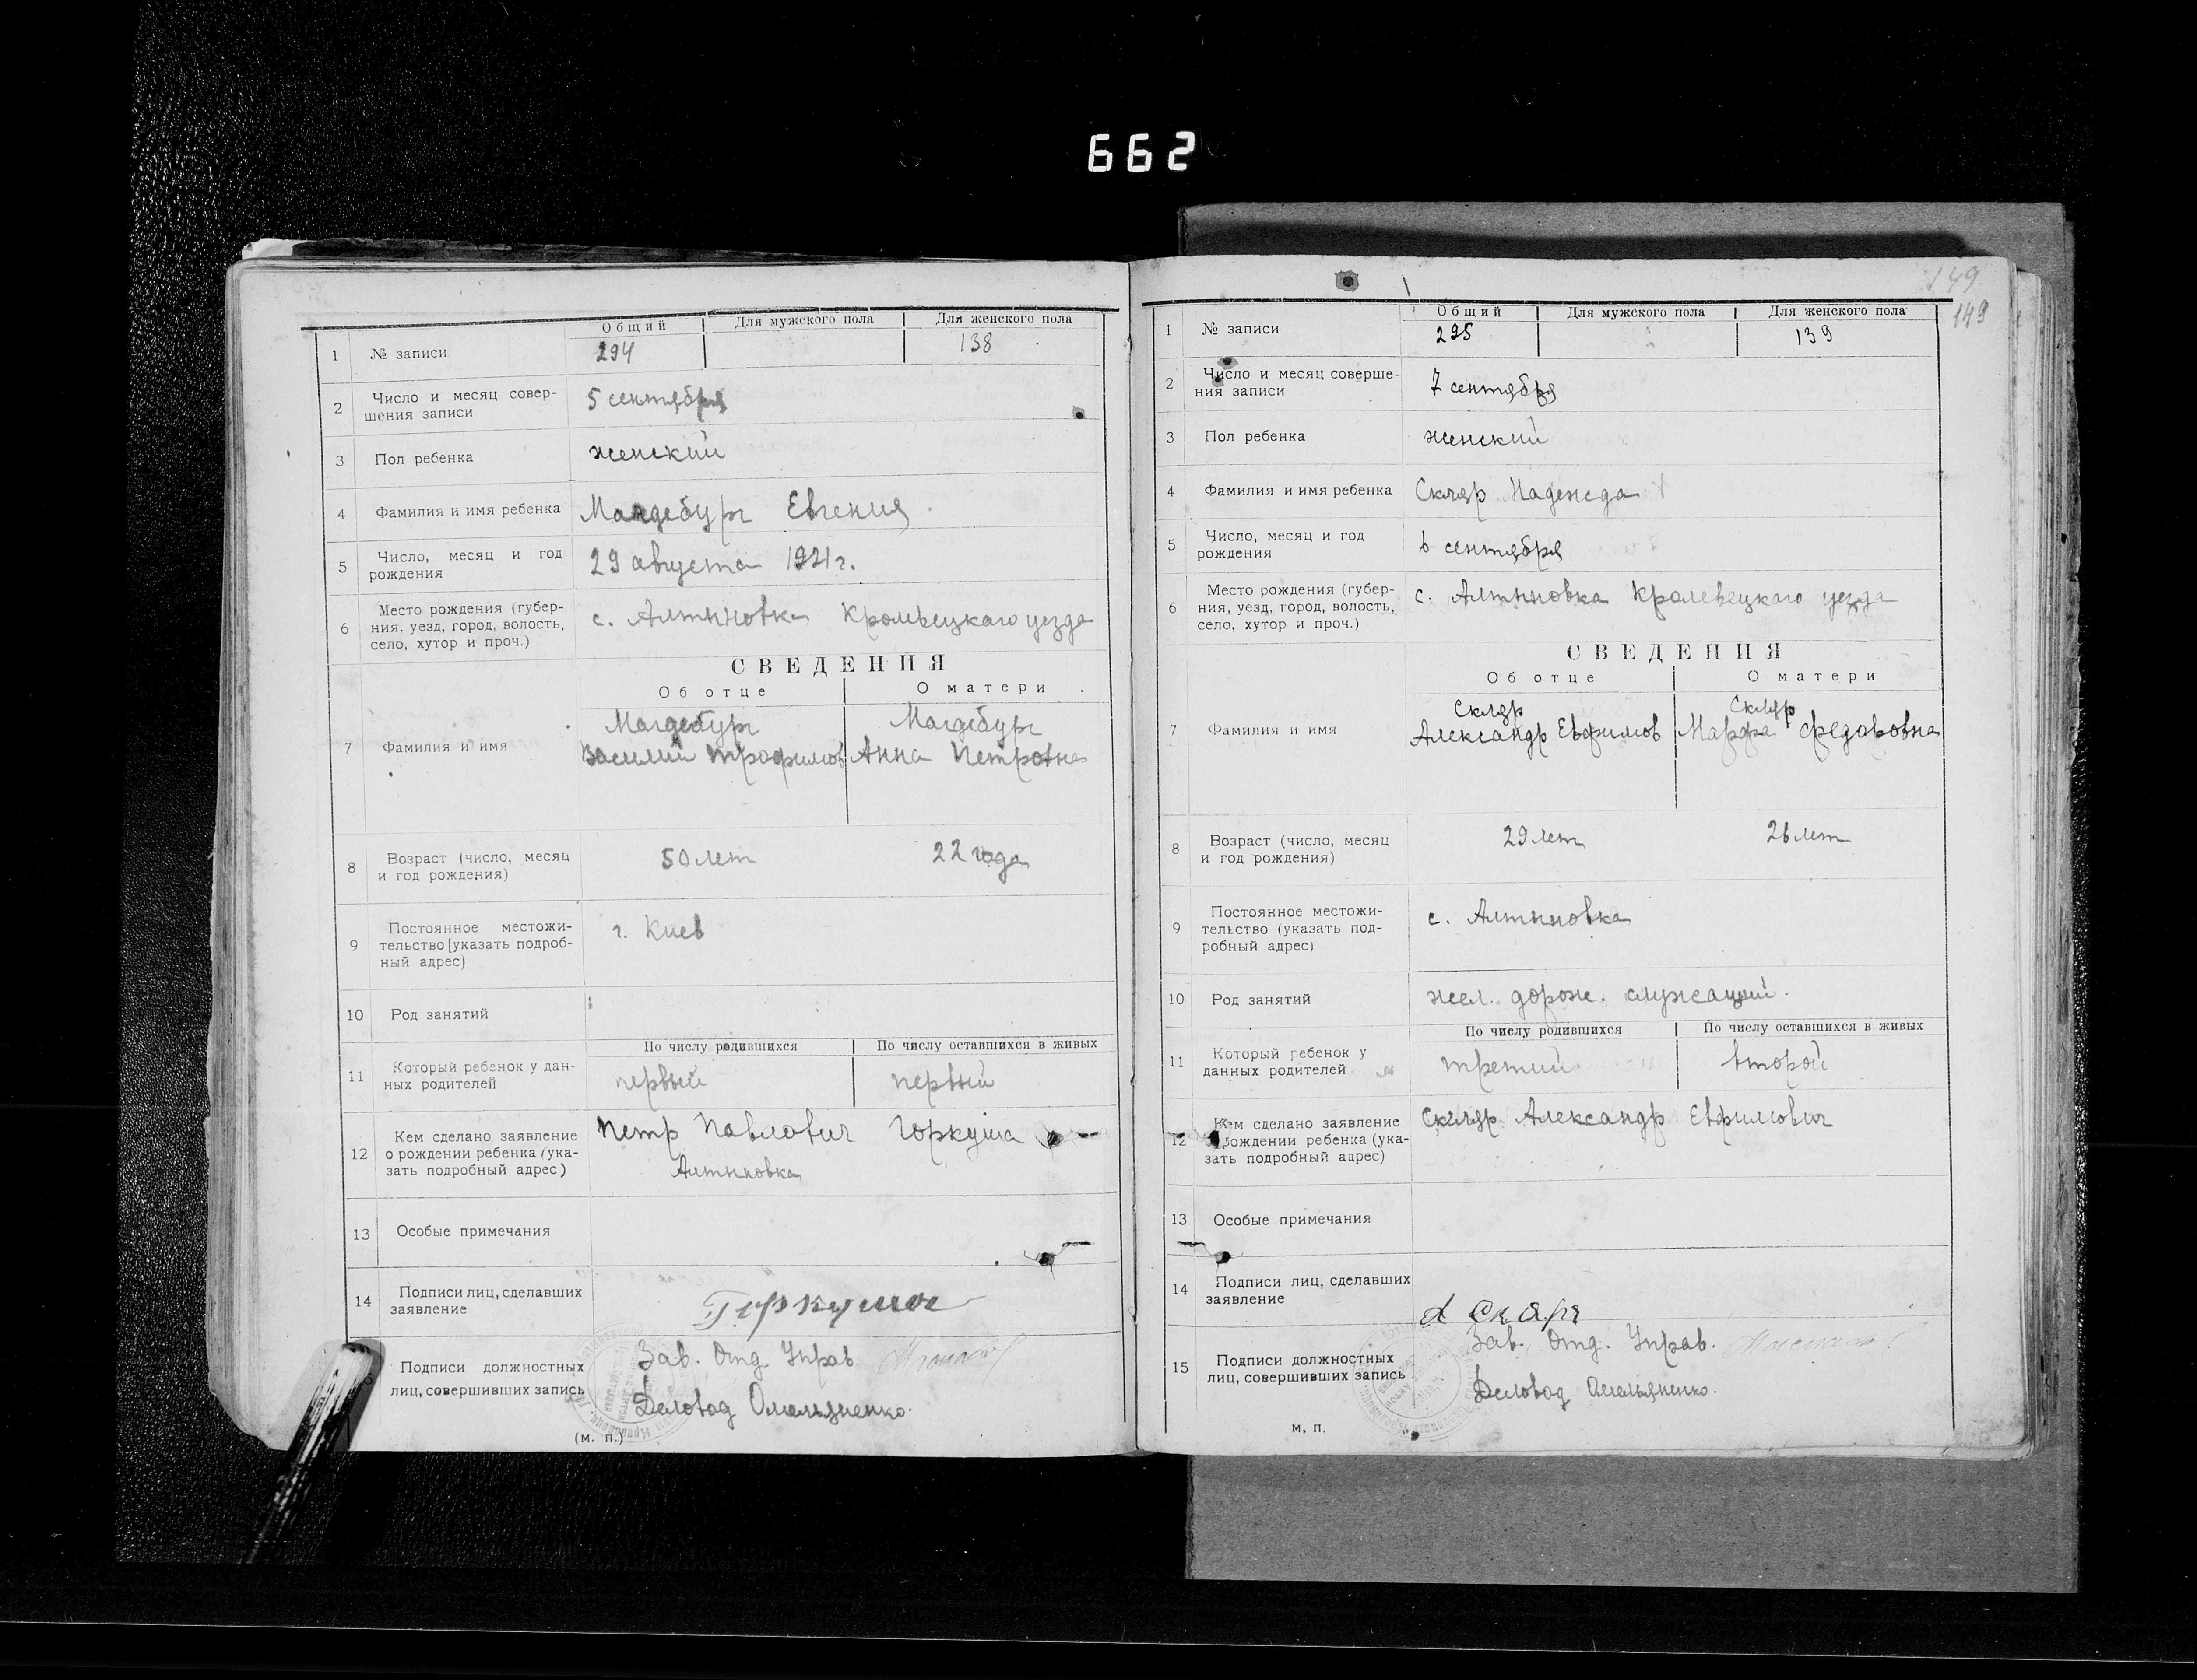 662
Общий Для мужского пола Для женского пола
1 № записи 294 138
2 Число и месяц совер-
шения записи 5 сентября
3 Пол ребенка женский
4 Фамилия и имя ребенка Магдебург Евгения
5 Число, месяц и год
рождения 29 августа 1921 г.
6 Место рождения (губер-
ния, уезд, город, волость,
село, хутор и проч.) с. Алтыновка Кролевецкаго уезда
СВЕДЕНИЯ
Об отце О матери
7 Фамилия и имя
Магдебург Магдебург
Василий Трофимов Анна Петровна
8 Возраст (число, месяц
и год рождения) 50 лет 22 года
9 Постоянное местожи-
тельство [указать подроб-
ный адрес) г. Киев
10 Род занятий
По числу родившихся По числу оставшихся в живых
11 Который ребенок у дан-
ных родителей первый первый
12 Кем сделано заявление
о рождении ребенка (ука-
зать подробный адрес) Петр Павлович Горкуша
Алтыновка
13 Особые примечания
14 Подписи лиц, сделавших
заявление Горкуша
Подписи должностных
лиц, совершивших запись
Зав. Отд. Управ.
Деловод Омельяненко.
(м. п.)
149
149
Общий Для мужского пола Для женского пола
1 № записи 295 139
2 Число и месяц соверше-
ния записи 7 сентября
3 Пол ребенка женский
4 Фамилия и имя ребенка Скляр Надежда
5 Число, месяц и год
рождения 6 сентября
6 Место рождения (губер-
ния, уезд, город, волость,
село, хутор и проч.) с. Алтыновка Кролевецкаго уезда
СВЕДЕНИЯ
Об отце О матери
7 Фамилия и имя
Скляр Скляр
Александр Евфимов Марфа Федоровна
8 Возраст (число, месяц
и год рождения) 29 лет 26 лет
9 Постоянное местожи-
тельство (указать под-
робный адрес) с. Алтыновка
10 Род занятий жел. дорож. служащий.
По числу родившихся По числу оставшихся в живых
11 Который ребенок у
данных родителей третий второй
12 Кем сделано заявление
о рождении ребенка (ука-
зать подробный адрес) Скляр Александр Евфимович
13 Особые примечания
14 Подписи лиц, сделавших
заявление А Скляр
15 Подписи должностных
лиц, совершивших запись
Зав. Отд. Управ.
Деловод Омельяненко.
м. п.